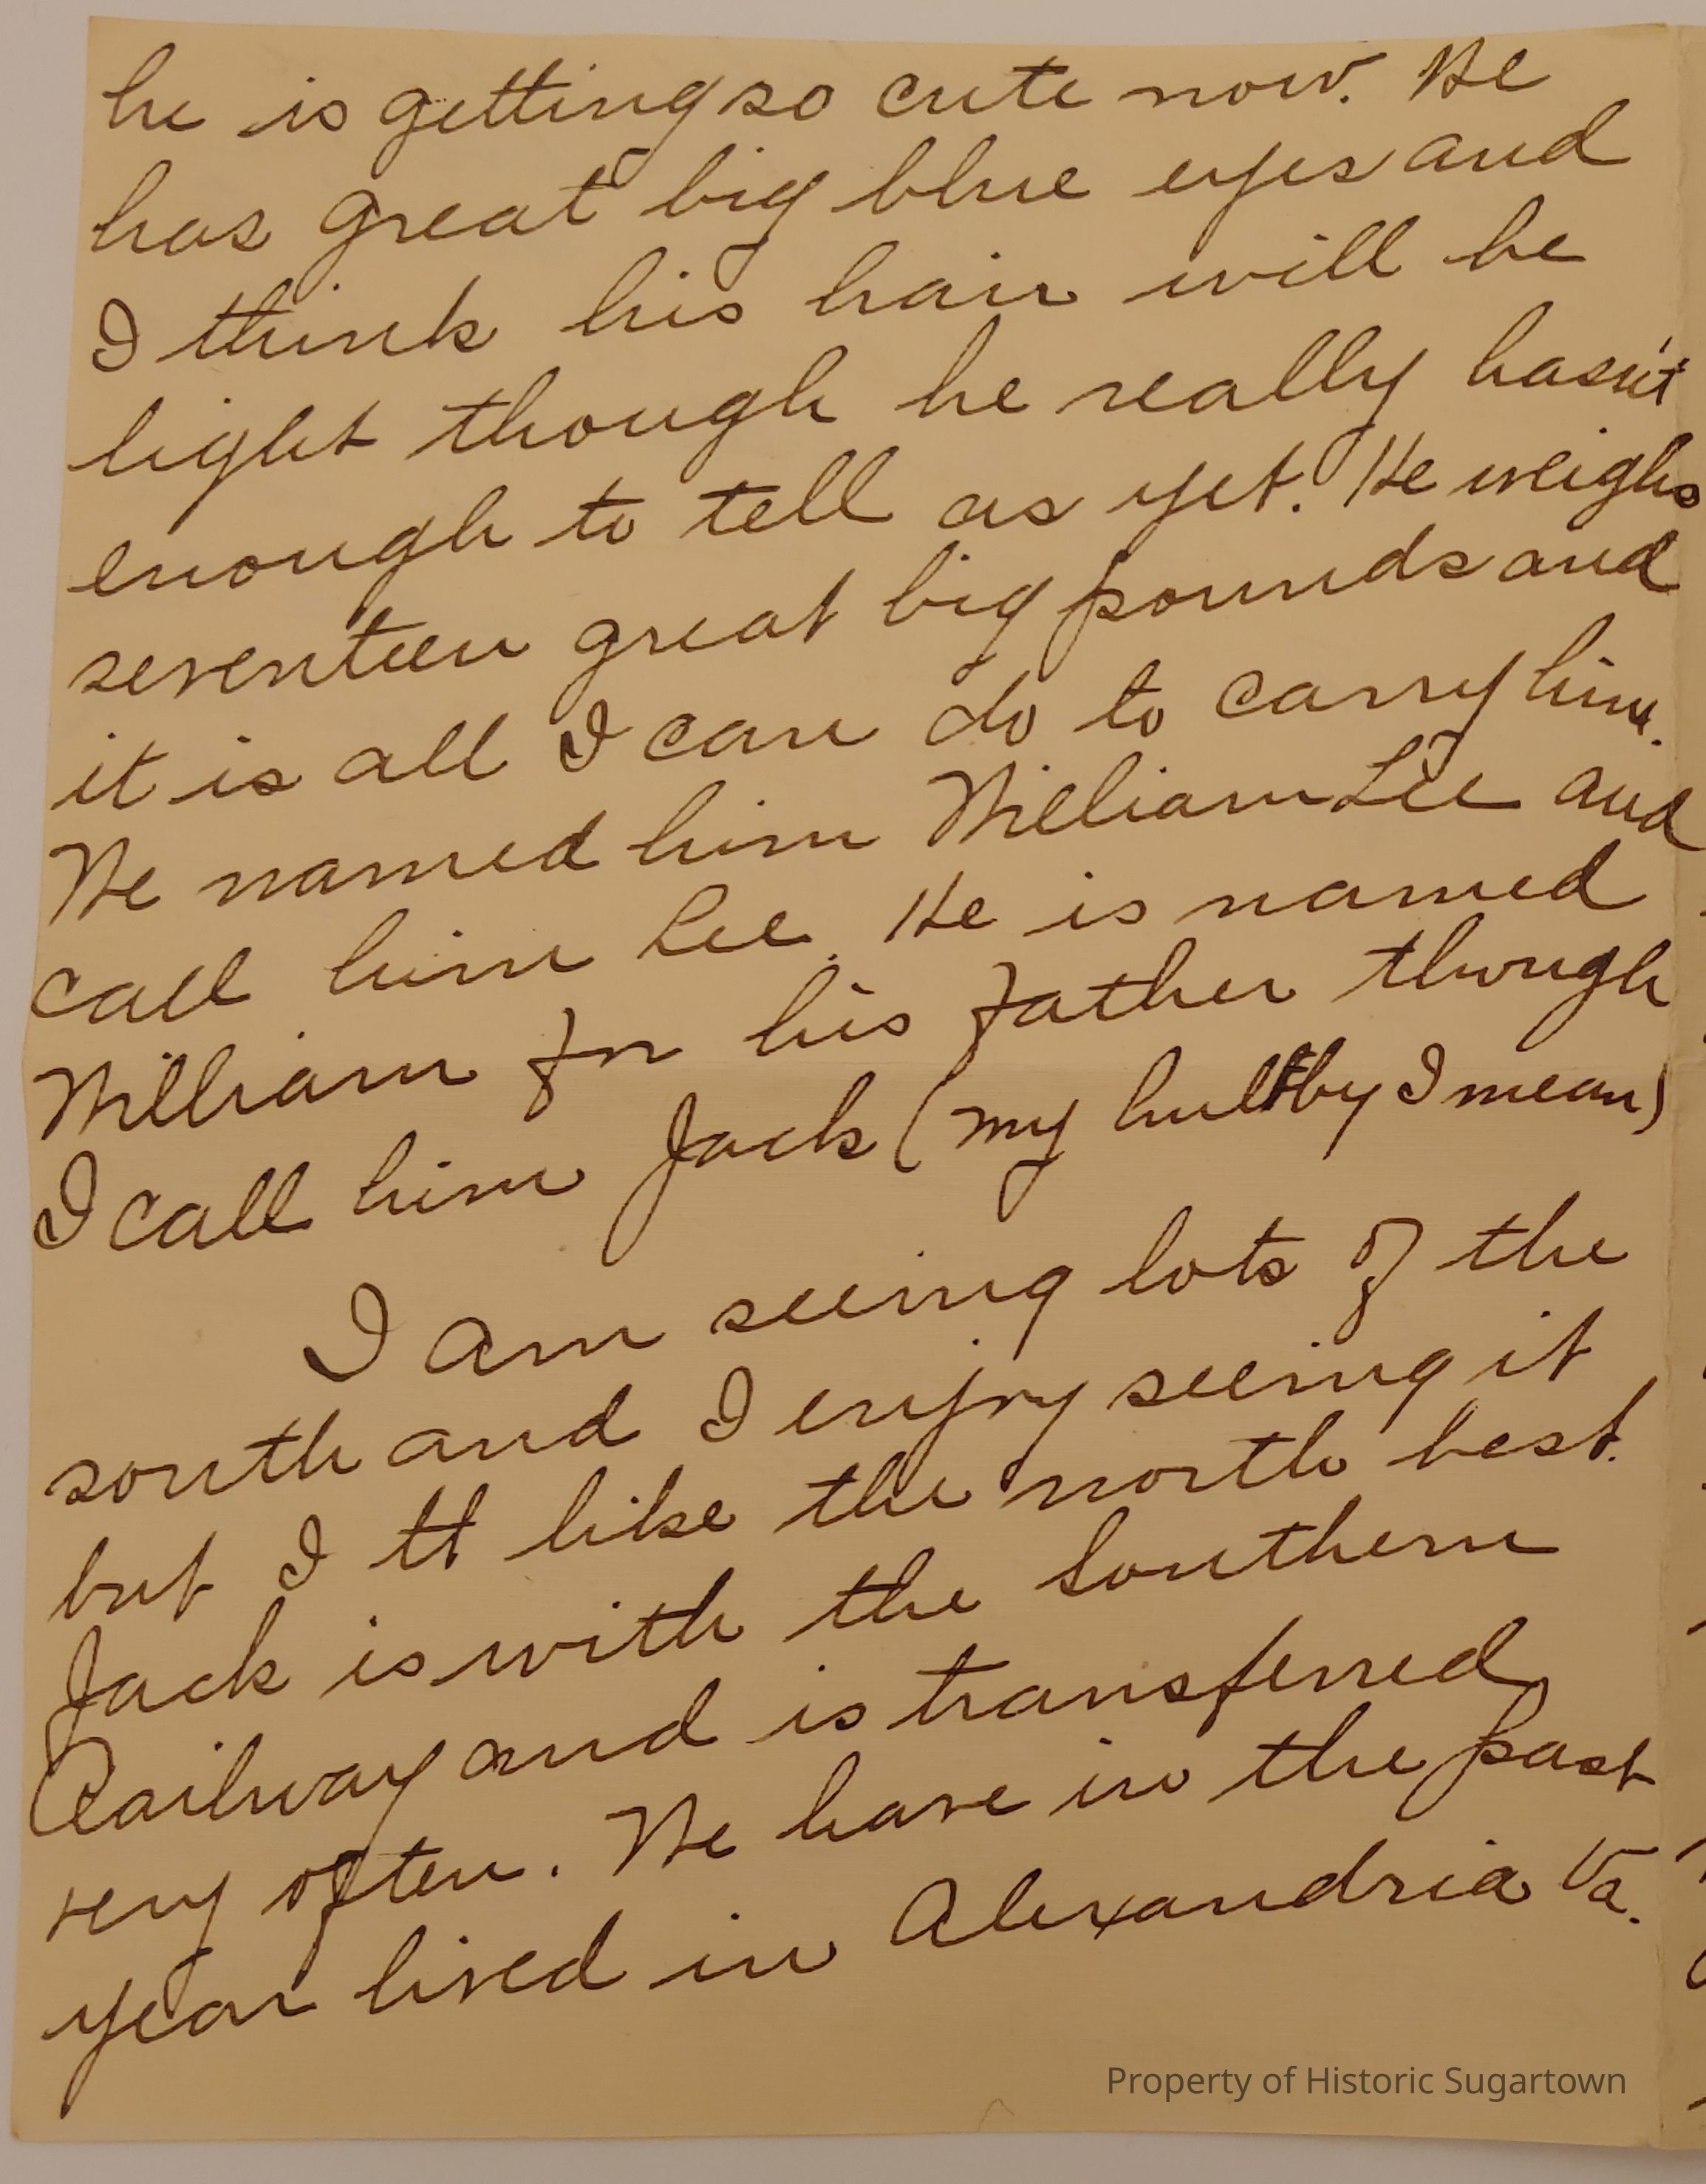 he is getting so cute now. He
has great big blue eyes and
I think his hair will be
light though he really hasn't
enough to tell as yet. He weighs
seventeen great big pounds and
it is all I can do to carry him.
We named him William Lee and
call him Lee. He is named
William for his father though
I call him Jack (my hubby I mean)
I am seeing lots of the
south and I enjoy seeing it
but I tt like the north best.
Jack is with the Southern
Railway and is transferred
very often. We have in the past
year lived in Alexandria Va.
Property of Historic Sugartown